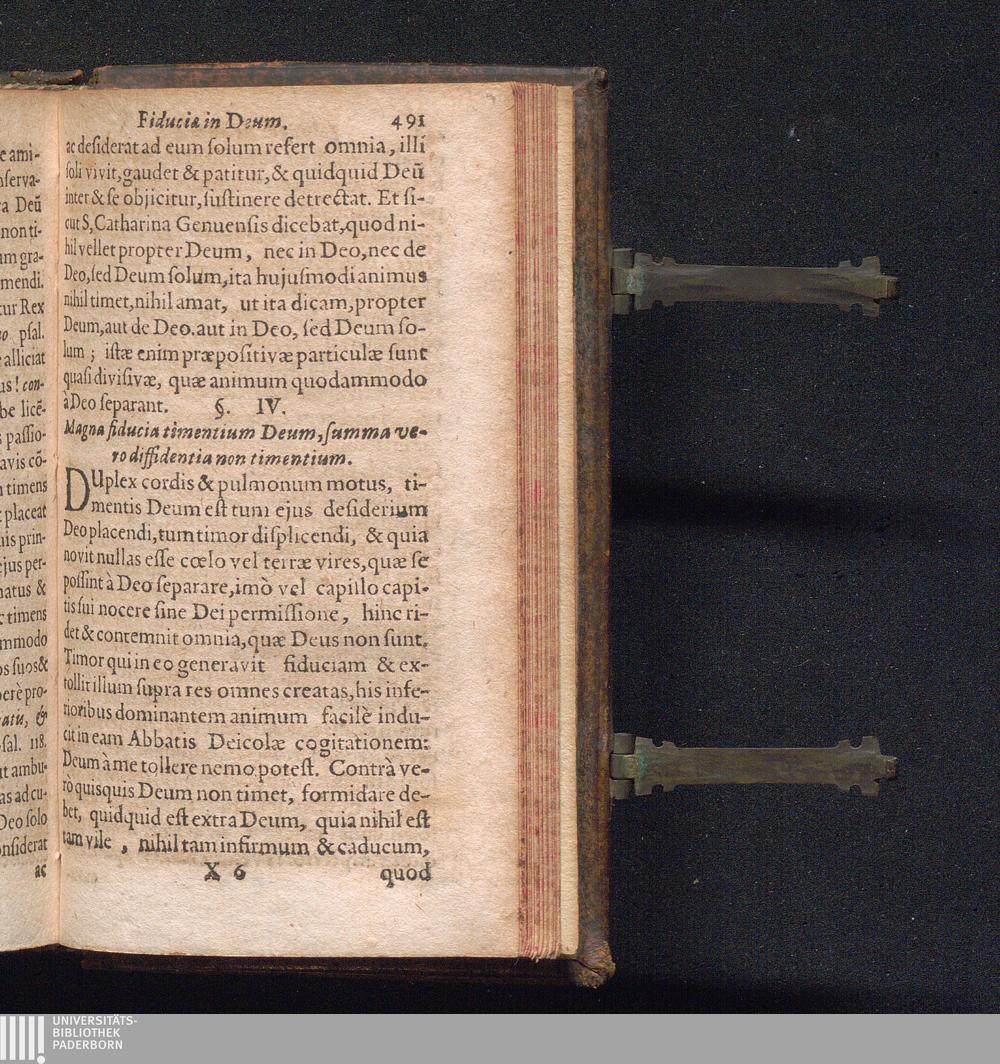 e ami-
nserva-
ra Deũ
non ti-
um gra-
mendi.
tur Rex
psal.
alliciat
us! con-
be licē-
passio-
avis cō-
timens
placeat
uis prin-
ejus per-
natus &
timens
mmodo
os suos&
perè pro-
&
sal. 118.
ut ambu-
as ad cu-
Deo solo
onsiderat
ac
Fiducia in Deum. 491
ac desiderat ad eum solum refert omnia, illi
soli vivit, gaudet & patitur, & quidquid Deũ
inter & se objicitur, sustinere detrectat. Et si-
cut S, Catharina Genuensis dicebat, quod ni-
hil vellet propter Deum, nec in Deo, nec de
Deo, sed Deum solum, ita hujusmodi animus
nihil timet, nihil amat, ut ita dicam, propter
Deum, aut de Deo. aut in Deo, sed Deum so-
lum; istæ enim præpositivæ particulæ sunt
quasi divisivæ, quæ animum quodammodo
à Deo separant. §. IV.
Magna fiducia timentium Deum, summa ve-
ro diffidentia non timentium.
DUplex cordis & pulmonum motus, ti-
mentis Deum est tum ejus desiderium
Deo placendi, tum timor displicendi, & quia
novit nullas esse cœlo vel terræ vires, quæ se
possint à Deo separare, imò vel capillo capi-
tis sui nocere sine Dei permissione, hinc ri-
det & contemnit omnia, quæ Deus non sunt.
Timor qui in eo generavit fiduciam & ex-
tollit illum supra res omnes creatas, his infe-
rioribus dominantem animum facilè indu-
cit in eam Abbatis Deicolæ cogitationem:
Deum à me tollere nemo potest. Contrà ve-
rò quisquis Deum non timet, formidare de-
bet, quidquid est extra Deum, quia nihil est
tam vile, nihil tam infirmum & caducum,
X 6 quod
UNIVERSITÄTS-
BIBLIOTHEK
PADERBORN